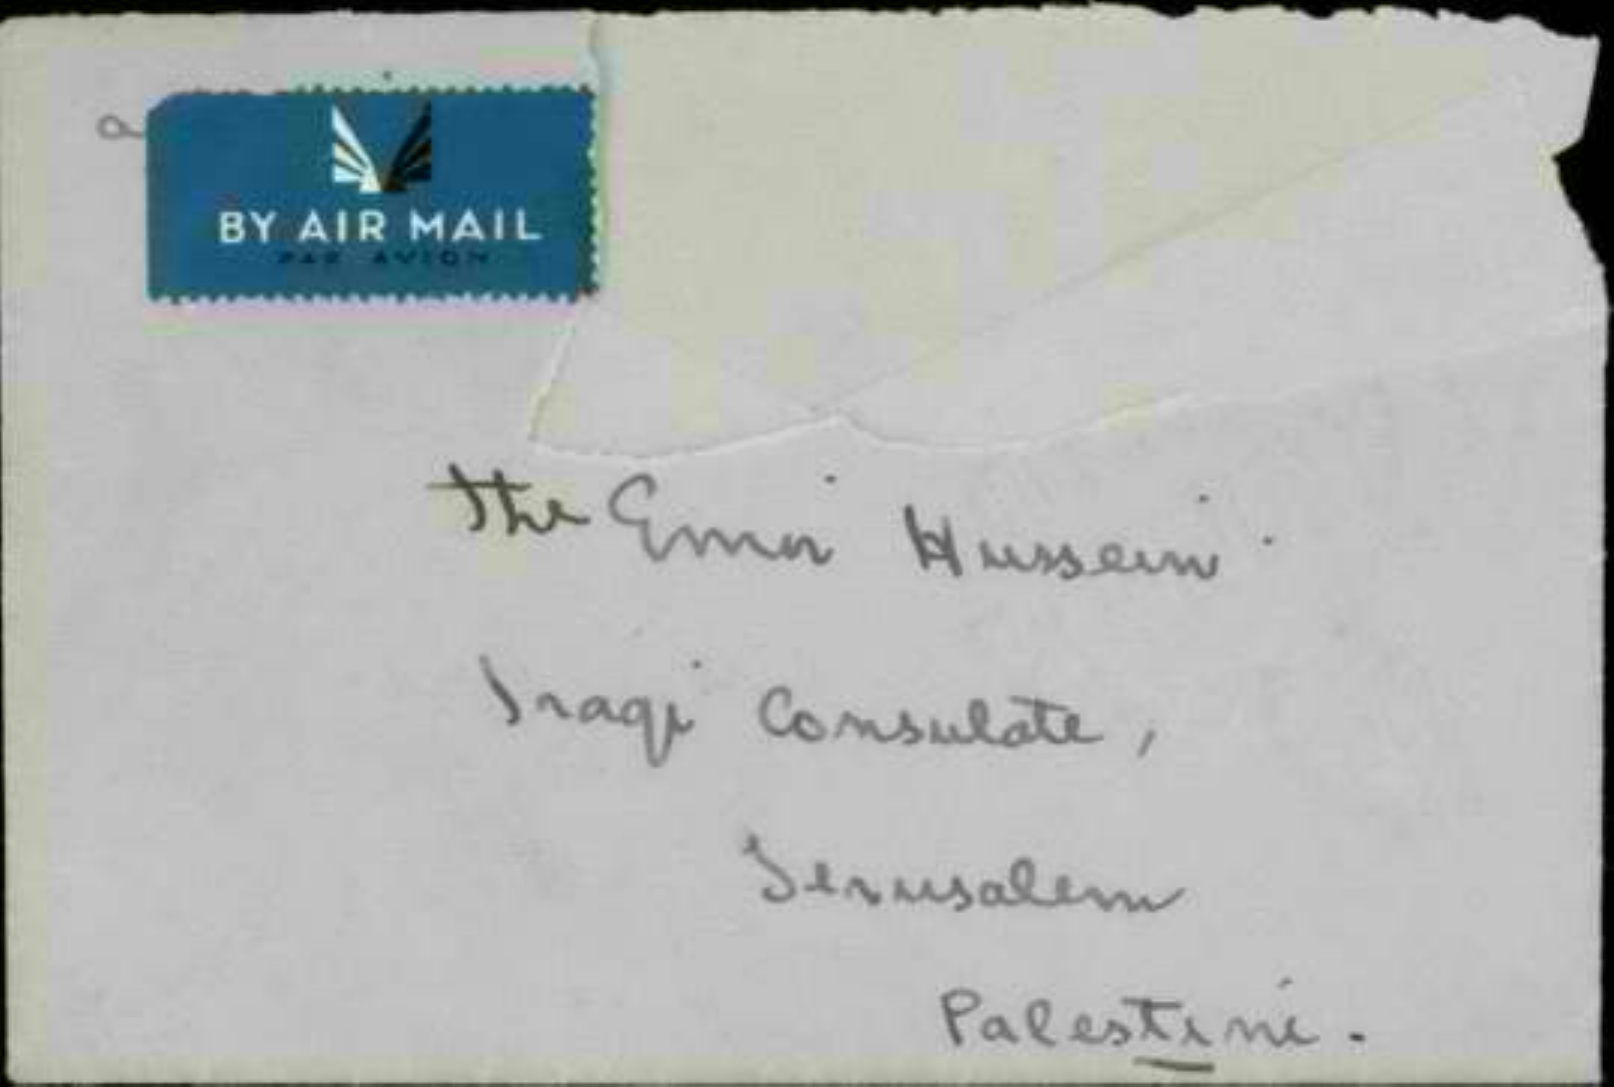 BY AIR MAIL
PAR AVION
The Emir Hussein
Iraqi Consulate,
Jerusalem
Palestine.